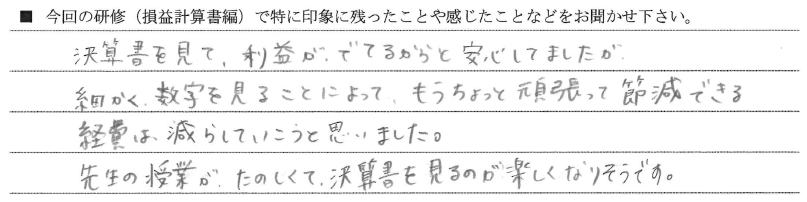 ■ 今回の研修（損益計算書編）で特に印象に残ったことや感じたことなどをお聞かせ下さい。
決算書を見て、利益が、でてるからと安心してましたが
細かく、数字を見ることによって、もうちょっと頑張って節減できる
経費は、減らしていこうと思いました。
先生の授業が、たのしくて、決算書を見るのが楽しくなりそうです。